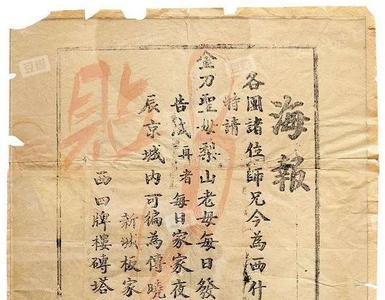 海報
各團諸位師兄今為西什
特請
金刀聖母梨山老母每日發
告成再者每日家家夜
辰京城内可編為傳曉
新城板家
西四牌樓磚塔